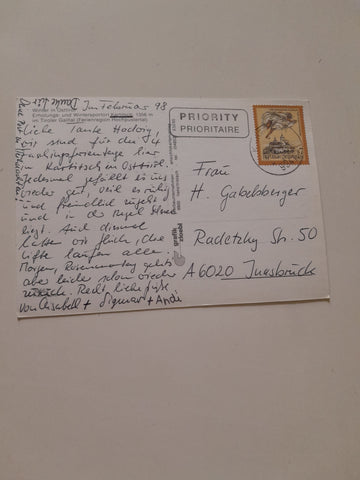 Im Februar 98
Winter in Osttirol
Erholungs- und Wintersportort Kartitsch, 1356 m
im Tiroler Gailtal (Ferienregion Hochpustertal)
Liebe Tante
wir sind für die 4
Faschingsferientage hier
in Kartitsch in Osttirol.
Jedesmal gefällt es uns
wieder gut, weil es ruhig
und friedlich zugeht
und in der Regel Schnee
liegt. Auch diesmal
hatten wir Glück, die
Lifte laufen alle.
Morgen, Rosenmontag geht's
aber leider schon wieder
zurück. Recht liebe Grüße
von Elisabeth + Sigmar + Andi
grafik
zloebl
PRIORITY
PRIORITAIRE
Frau
H. Gabelsberger
Radetzky Str. 50
A 6020 Innsbruck